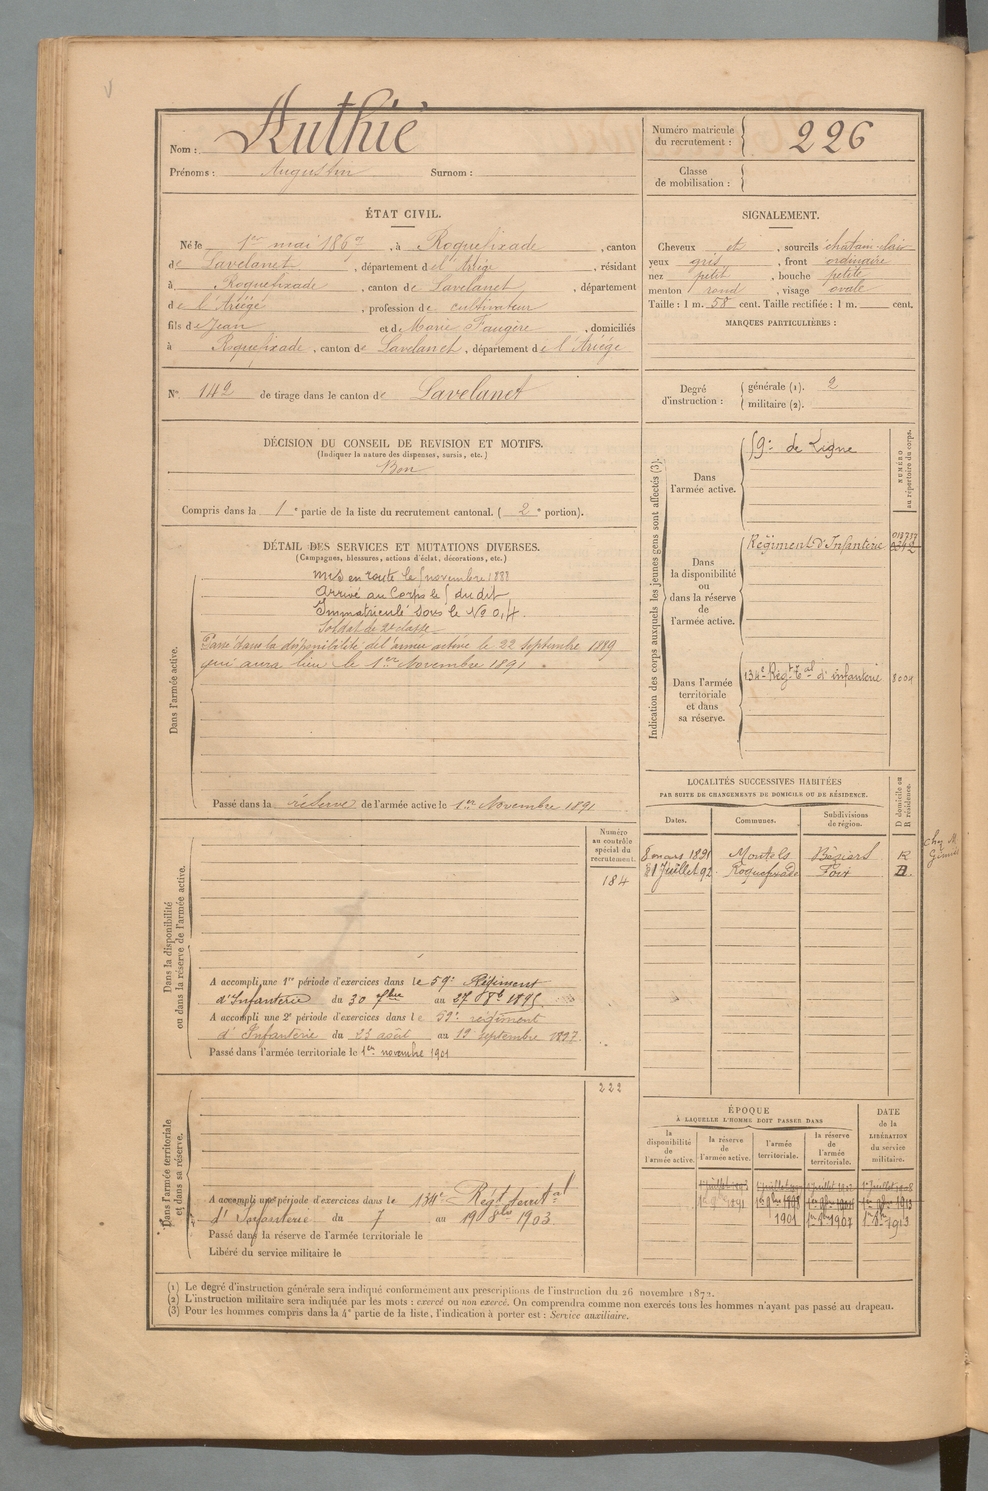 Nom : Authié
Prénoms : Augustin Surnom :
Numéro matricule du recrutement : 226
Classe de mobilisation :
ÉTAT CIVIL.
Né le 1er mai 1867, à Roquefixade, canton
de Lavelanet, département de l'Ariége, résidant
à Roquefixade, canton de Lavelanet, département
de l'Ariége, profession de cultivateur
fils de Jean et de Marie Faugère, domiciliés
à Roquefixade, canton de Lavelanet, département de l'Ariége
N° 142 de tirage dans le canton de Lavelanet
SIGNALEMENT.
Cheveux et, sourcils chatain-clair
yeux gris, front ordinaire
nez petit, bouche petite
menton rond, visage ovale
Taille : 1 m. 58 cent. Taille rectifiée : 1 m. cent.
MARQUES PARTICULIÈRES :
Degré d'instruction : générale (1). 2
militaire (2).
DÉCISION DU CONSEIL DE REVISION ET MOTIFS.
(Indiquer la nature des dispenses, sursis, etc.)
Bon
Compris dans la 1e partie de la liste du recrutement cantonal. ( 2e portion).
DÉTAIL DES SERVICES ET MUTATIONS DIVERSES.
(Campagnes, blessures, actions d'éclat, décorations, etc.)
Dans l'armée active.
Mis en route le novembre 1888
Arrivé au Corps le dudit
Immatriculé sous le No
Soldat de 2e classe
Passé dans la disponibilité de l'armée active le 22 Septembre 1889
qui aura lieu le 1er Novembre 1891.
Passé dans la réserve de l'armée active le 1er Novembre 1891
Indication des corps auxquels les jeunes gens sont affectés (3).
NUMÉRO au répertoire du corps.
Dans l'armée active.
59e de Ligne
Dans la disponibilité ou dans la réserve de l'armée active.
Régiment d'Infanterie
Dans l'armée territoriale et dans sa réserve.
134e Régt Tal d'infanterie
LOCALITÉS SUCCESSIVES HABITÉES
PAR SUITE DE CHANGEMENTS DE DOMICILE OU DE RÉSIDENCE.
Dates. Communes. Subdivisions de région. D domicile ou R résidence.
8 mars 1891 Montels Béziers R
1 Juillet 92 Roquefixade Foix D
chez M.
Dans la disponibilité ou dans la réserve de l'armée active.
Numéro au contrôle spécial du recrutement.
184
A accompli une 1re période d'exercices dans le 59e Régiment
d'Infanterie du 30 7bre au 27 8bre 1895
A accompli une 2e période d'exercices dans le 59e régiment
d'Infanterie du 23 août au 19 septembre 1897.
Passé dans l'armée territoriale le 1er novembre 1901
Dans l'armée territoriale et dans sa réserve.
222
A accompli une période d'exercices dans le 134e Régt territal
d'Infanterie du 7 au 19 8bre 1903
Passé dans la réserve de l'armée territoriale le
Libéré du service militaire le
ÉPOQUE
À LAQUELLE L'HOMME DOIT PASSER DANS
la disponibilité de l'armée active. la réserve de l'armée active. l'armée territoriale. la réserve de l'armée territoriale.
DATE de la LIBÉRATION du service militaire.
1901 1907 1913
(1) Le degré d'instruction générale sera indiqué conformément aux prescriptions de l'instruction du 26 novembre 1872.
(2) L'instruction militaire sera indiquée par les mots : exercé ou non exercé. On comprendra comme non exercés tous les hommes n'ayant pas passé au drapeau.
(3) Pour les hommes compris dans la 4e partie de la liste, l'indication à porter est : Service auxiliaire.